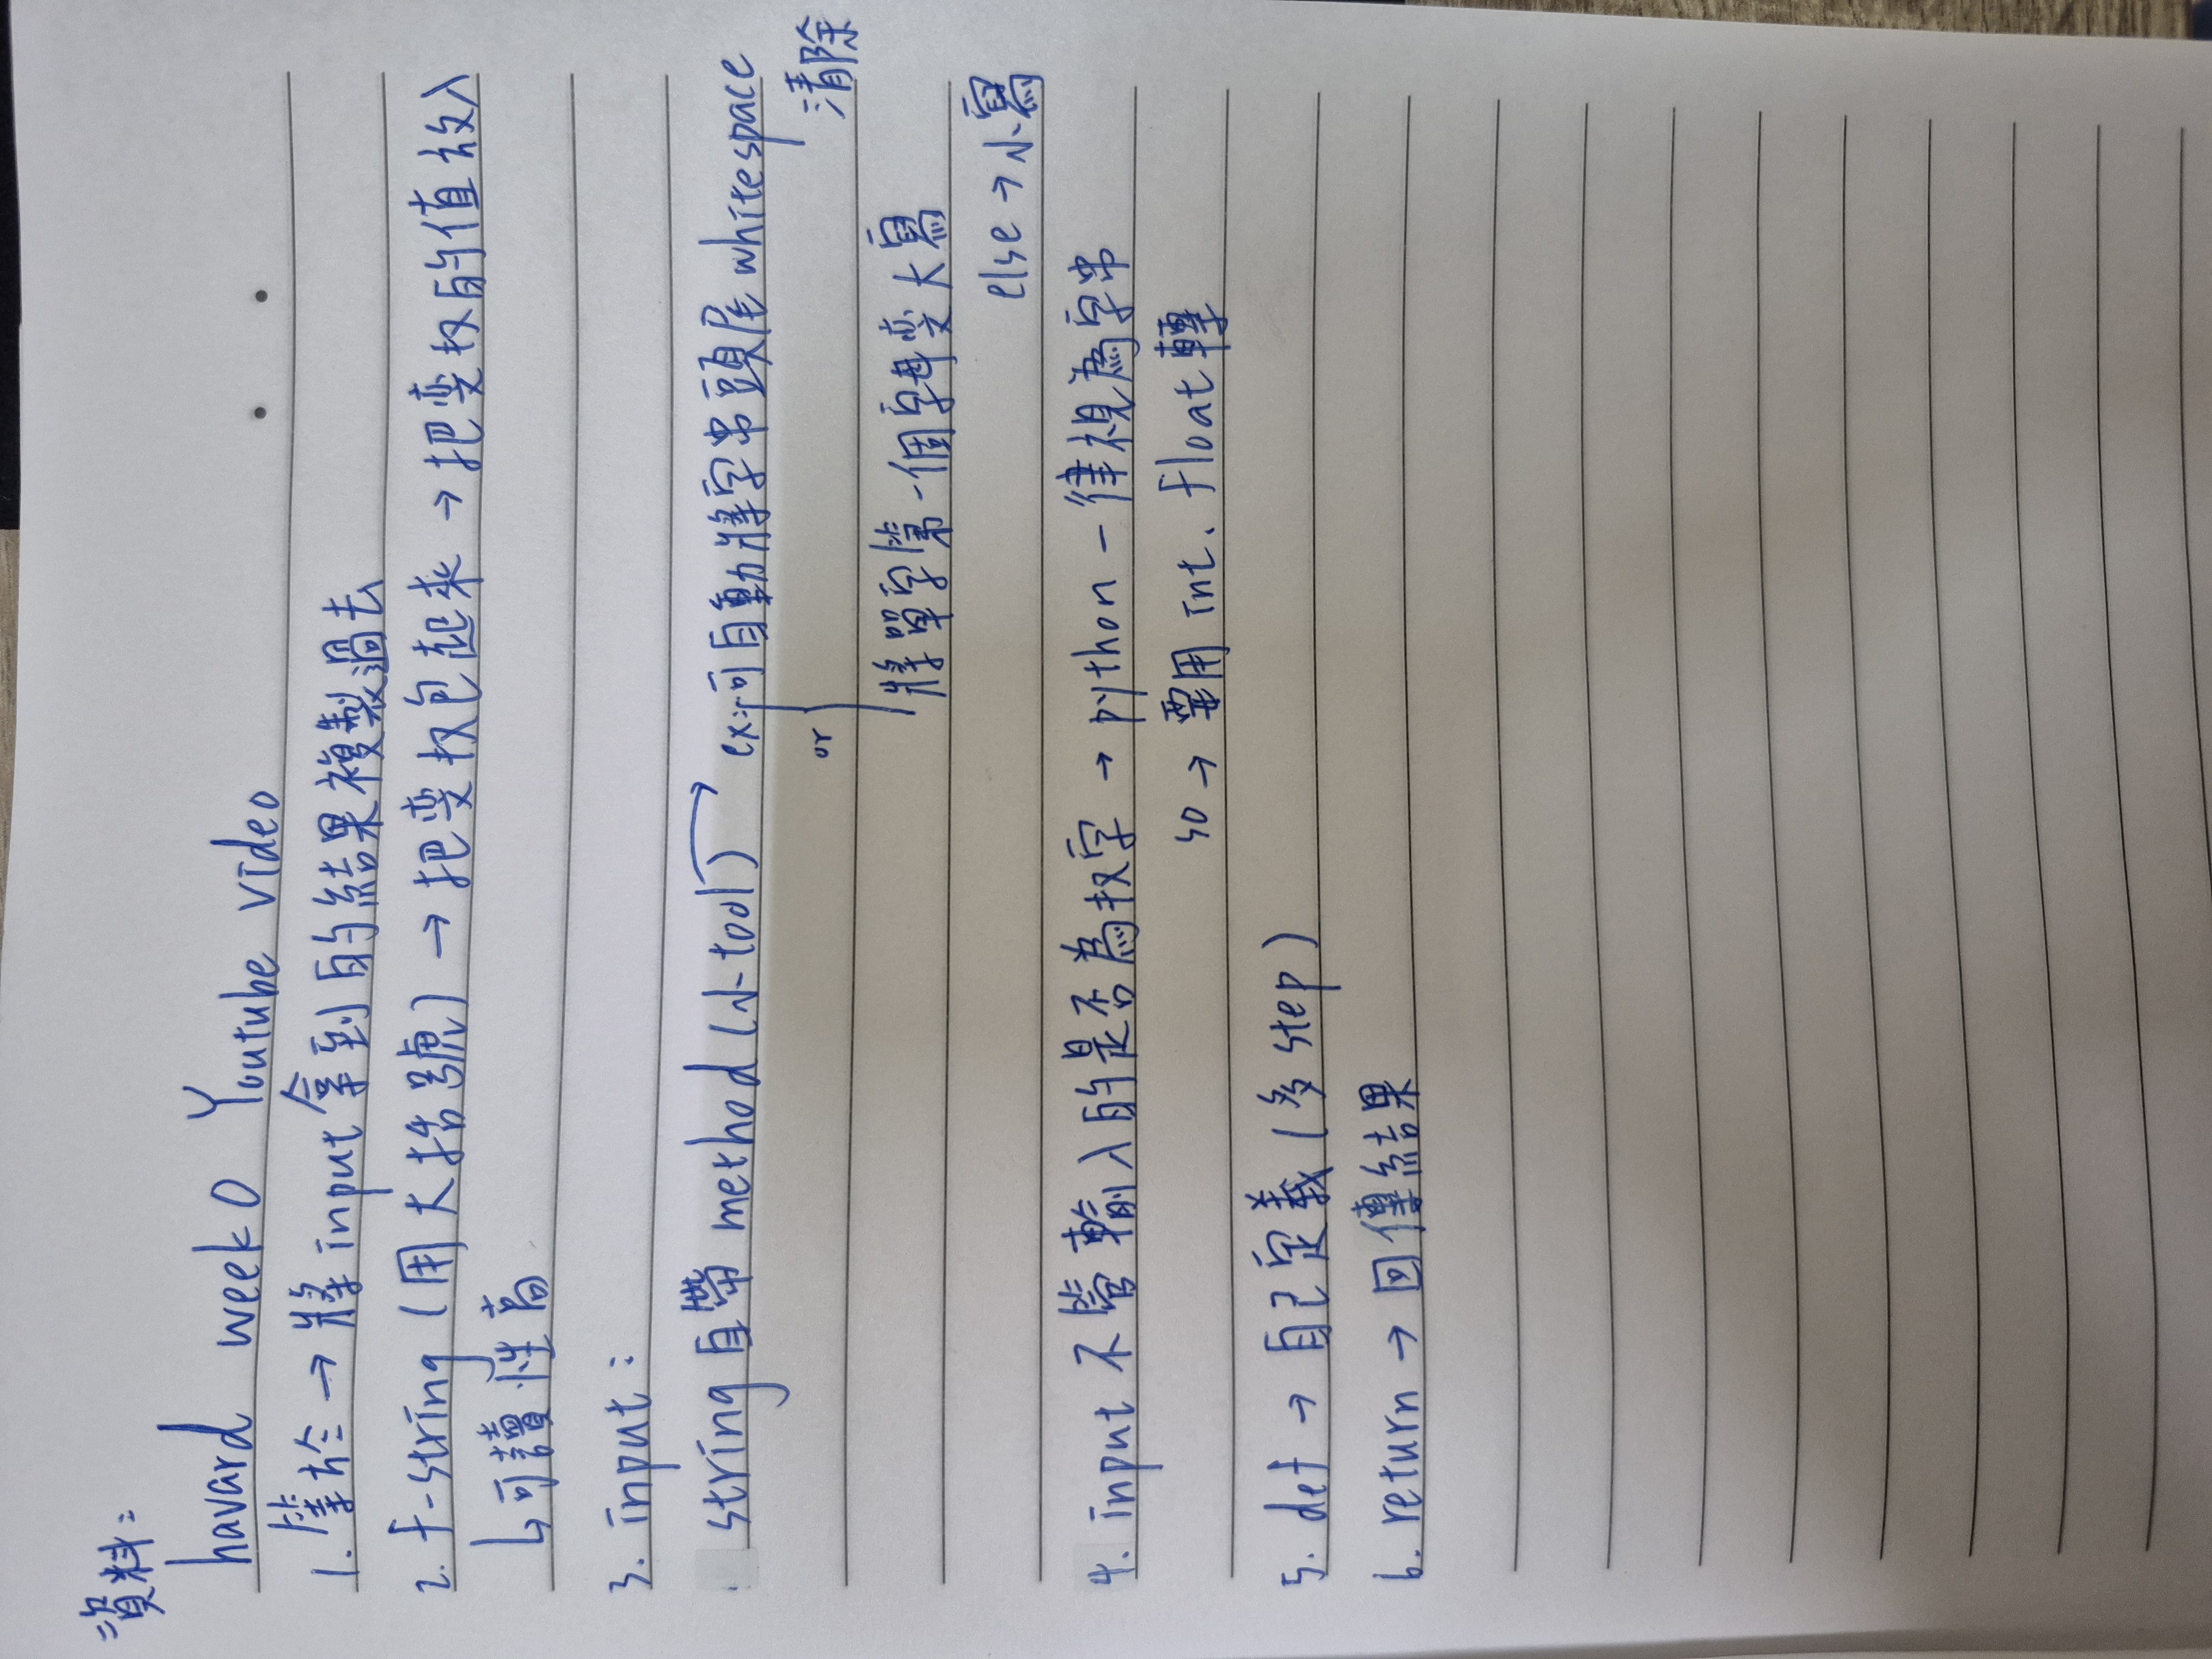 資料:
havard week 0 Youtube video
1. 等於 → 將 input 拿到的結果複製過去
2. f-string (用大括號) → 把变权包起來 → 把变权的值放入
↳可讀性高
3. input :
string 自帶 method (小 tool) → ex: 可自動將字串頭尾 whitespace
清除
or
將單字第一個字母变大寫
else → 小寫
4. input 不管輸入的是否為权字 → python 一律視為字串
so → 要用 int、float 轉
5. def → 自己定義 (多 step)
6. return → 回傳結果